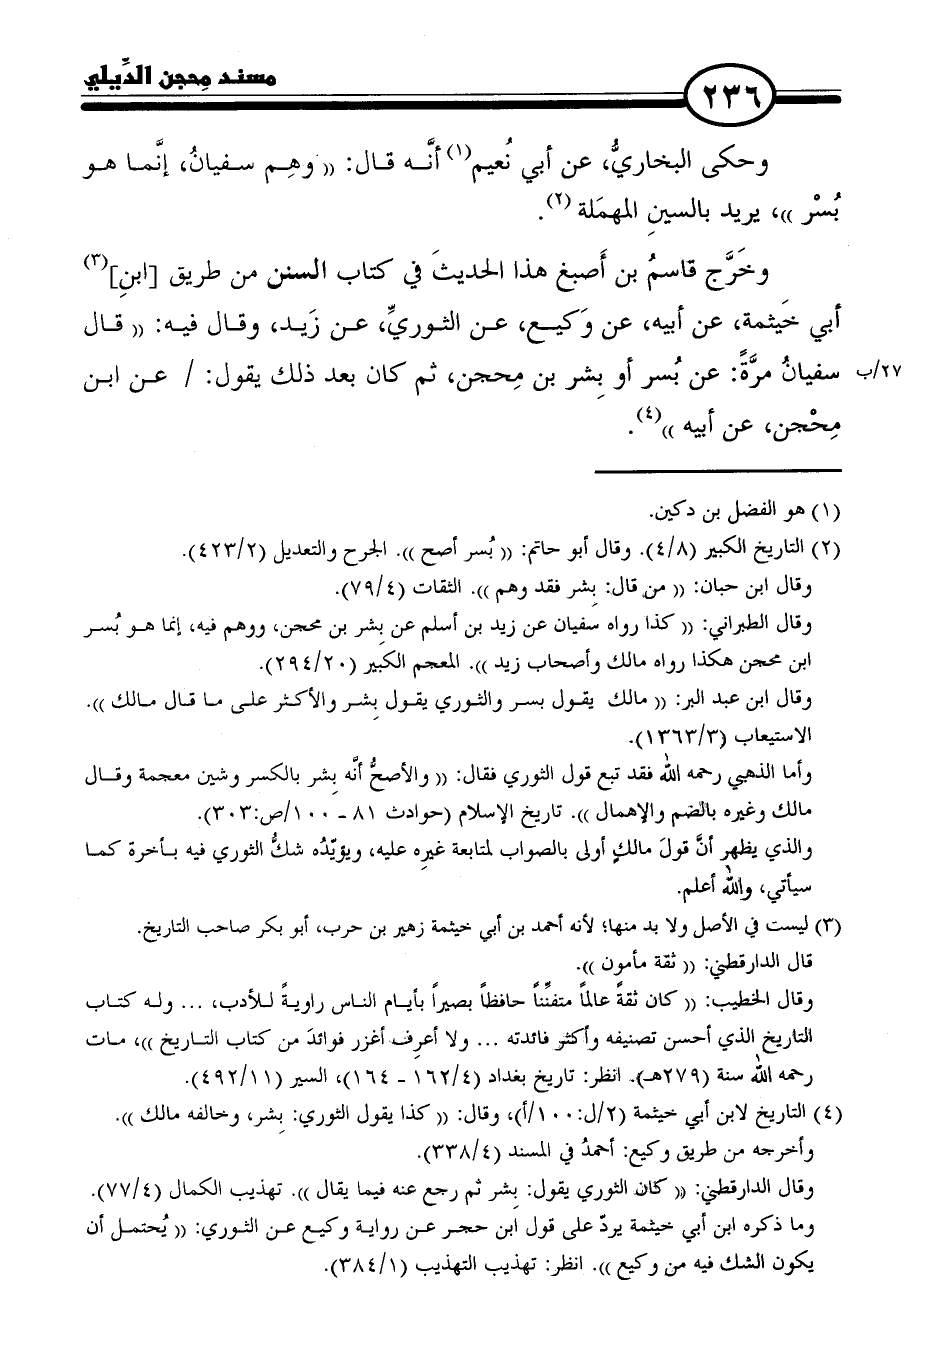 مسند مِحجن الدِّيلي
٢٣٦
وحكى البخاريُّ، عن أبي نُعيم(١) أنَّه قال: (( وهِم سفيانُ، إنَّما هو
بُسْر ))، يريد بالسينِ المهمَلة (٢).
وخَرَّج قاسمُ بن أَصبغ هذا الحديثَ في كتاب السنن من طريق [ابنِ](٣)
أبي خَيثمة، عن أبيه، عن وَكيع، عن الثوريِّ، عن زَيد، وقال فيه: (( قال
سفيانُ مرَّةً: عن بُسر أو بِشر بن مِحجن، ثم كان بعد ذلك يقول: / عن ابن
٢٧/ب
مِحْجن، عن أبيه ))(٤).
(١) هو الفضل بن دكين.
(٢) التاريخ الكبير (٤/٨). وقال أبو حاتم: (( بُسر أصح )). الجرح والتعديل (٤٢٣/٢).
وقال ابن حبان: (( من قال: بِشر فقد وهم )). الثقات (٧٩/٤).
وقال الطبراني: (( كذا رواه سفيان عن زيد بن أسلم عن بِشر بن محجن، ووهم فيه، إنما هو بُسر
ابن محجن هكذا رواه مالك وأصحاب زيد )). المعجم الكبير (٢٩٤/٢٠).
وقال ابن عبد البر: (( مالك يقول بسر والثوري يقول بِشر والأكثر على ما قال مالك )).
الاستيعاب (١٣٦٣/٣).
وأما الذهبي رحمه الله فقد تبع قول الثوري فقال: (( والأصحُّ أنَّه بِشر بالكسر وشين معجمة وقال
مالك وغيره بالضم والإهمال )). تاريخ الإسلام (حوادث ٨١ - ١٠٠/ص:٣٠٣).
والذي يظهر أنَّ قولَ مالكٍ أولى بالصواب لمتابعة غيرِه عليه، ويؤيّدُه شكُّ الثوري فيه بأخرة كما
سيأتي، والله أعلم.
(٣) ليست في الأصل ولا بد منها؛ لأنه أحمد بن أبي خيثمة زهير بن حرب، أبو بكر صاحب التاريخ.
قال الدارقطني: (( ثقة مأمون )).
وقال الخطيب: (( كان ثقةً عالماً متفنِّناً حافظاً بصيراً بأيام الناس راويةً للأدب، ... وله كتاب
التاريخ الذي أحسن تصنيفه وأكثر فائدته ... ولا أعرِف أغزر فوائدَ من كتاب التاريخ ))، مات
رحمه الله سنة (٢٧٩هـ). انظر: تاريخ بغداد (١٦٢/٤ - ١٦٤)، السير (٤٩٢/١١).
(٤) التاريخ لابن أبي خيثمة (٢/ل:١٠٠/أ)، وقال: (( كذا يقول الثوري: بِشر، وخالفه مالك )).
وأخرجه من طريق وكيع: أحمدُ في المسند (٣٣٨/٤).
وقال الدارقطني: (( كان الثوري يقول: بِشر ثم رجع عنه فيما يقال )). تهذيب الكمال (٧٧/٤).
وما ذكره ابن أبي خيثمة يردّ على قول ابن حجر عن رواية وكيع عن الثوري: (( يُحتمل أن
يكون الشك فيه من وكيع )). انظر: تهذيب التهذيب (٣٨٤/١).